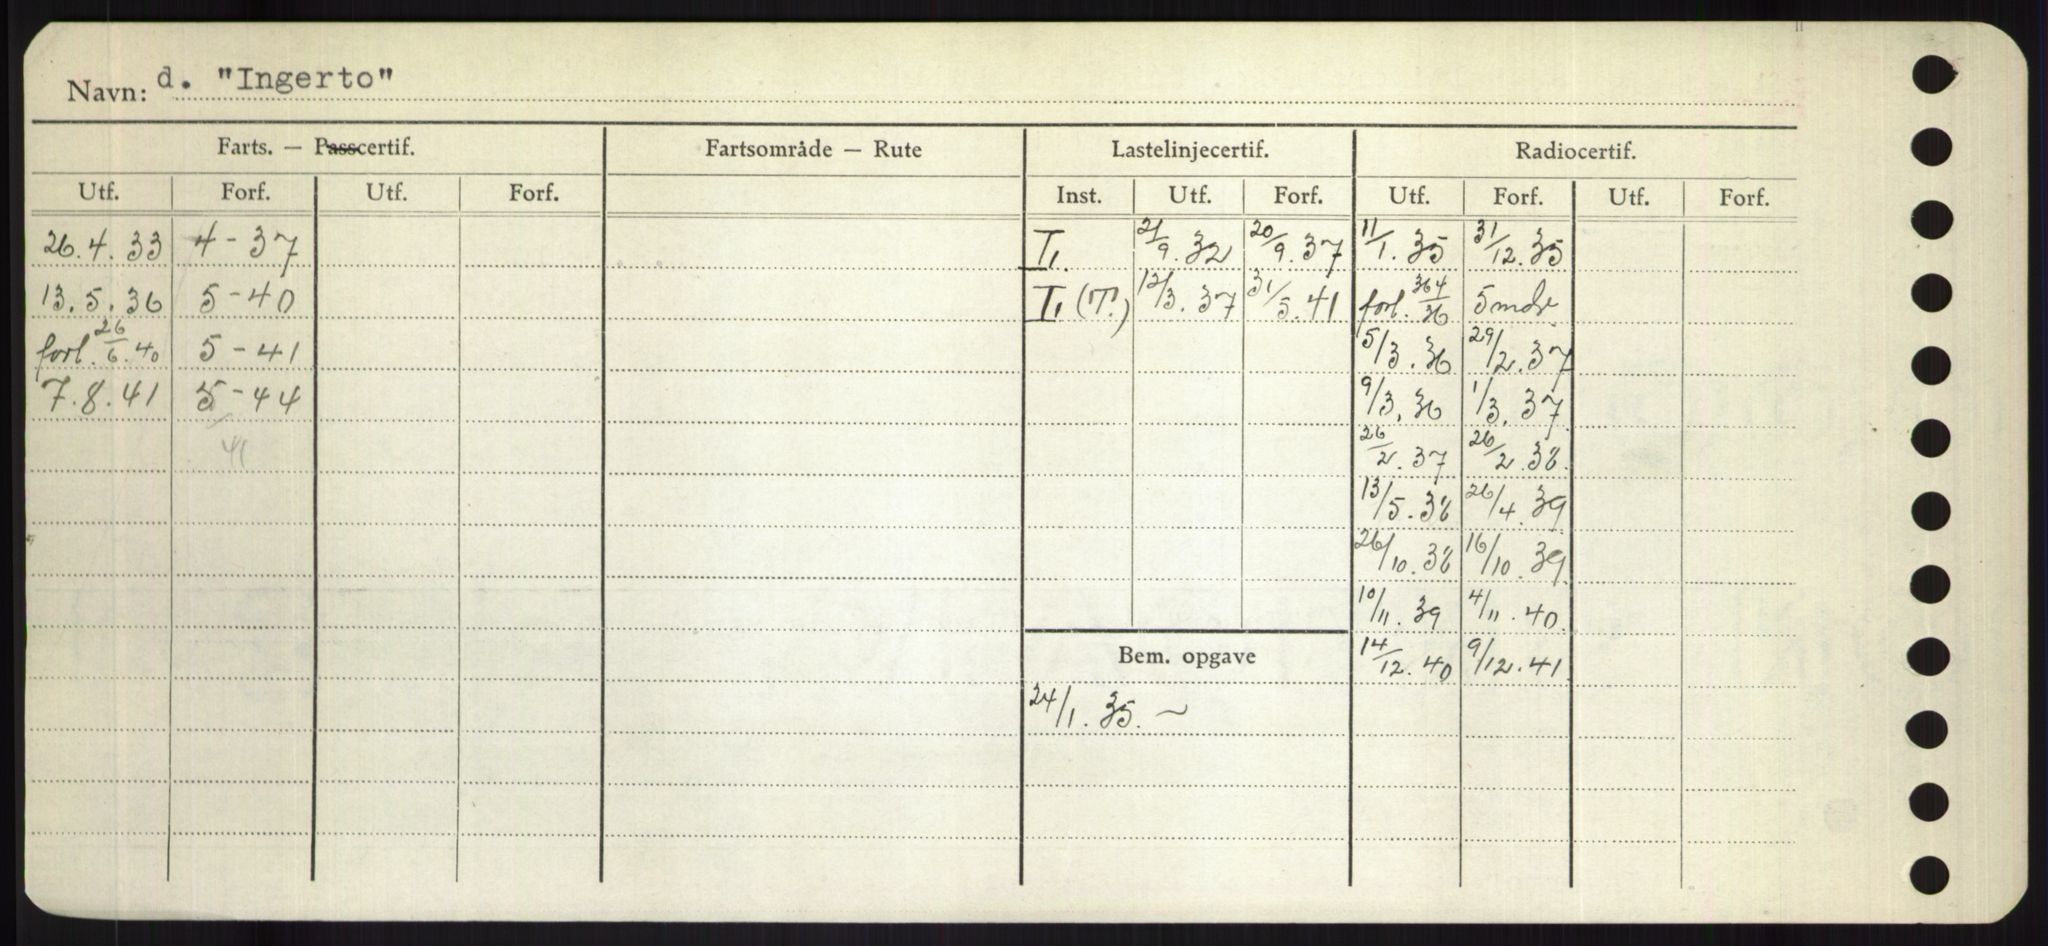 Navn: d. "Ingerto"
Farts. — Passcertif. Fartsområde — Rute Lastelinjecertif. Radiocertif.
Utf. Forf. Utf. Forf. Inst. Utf. Forf. Utf. Forf. Utf. Forf.
26.4.33 4-37 I, 21/9.32 20/9.37 11/1.35 31/12.35
13.5.36 5-40 I, (T.) 12/3.37 31/5.41 forl. 364/36 5 mdr
forl. 26/6.40 5-41 5/3.36 29/2.37
7.8.41 5-44 9/3.36 1/3.37
41 26/2.37 26/2.38.
13/5.38 26/4.39
26/10.38 16/10.39
10/11.39 4/11.40
Bem. opgave 14/12.40 9/12.41
24/1.35. ~